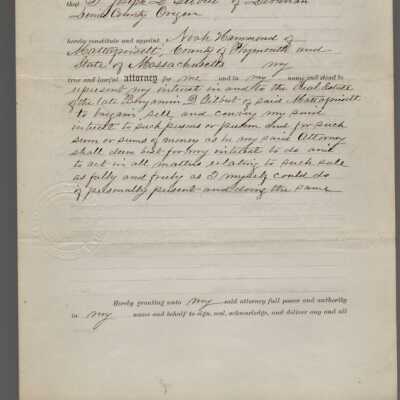 that I Joseph L. Gilbert of Lebanon
Linn County Oregon
hereby constitute and appoint Noah Hammond of
Mattapoisett, County of Plymouth and
State of Massachusetts my
true and lawful attorney for me and in my name and stead to
represent my interest in and to the Real Estate
of the late Benjamin D Gilbut of said Mattapoisett
to bargain, sell, and convey my said
interest to such person or persons and for such
sum or sums of money as he my said Attorney
shall deem best for my interest to do and
to act in all matters relating to such sale
as fully and freely as I myself could do
if personally present and doing the same
Hereby granting unto my said attorney full power and authority
in my name and behalf to sign, seal, acknowledge, and deliver any and all